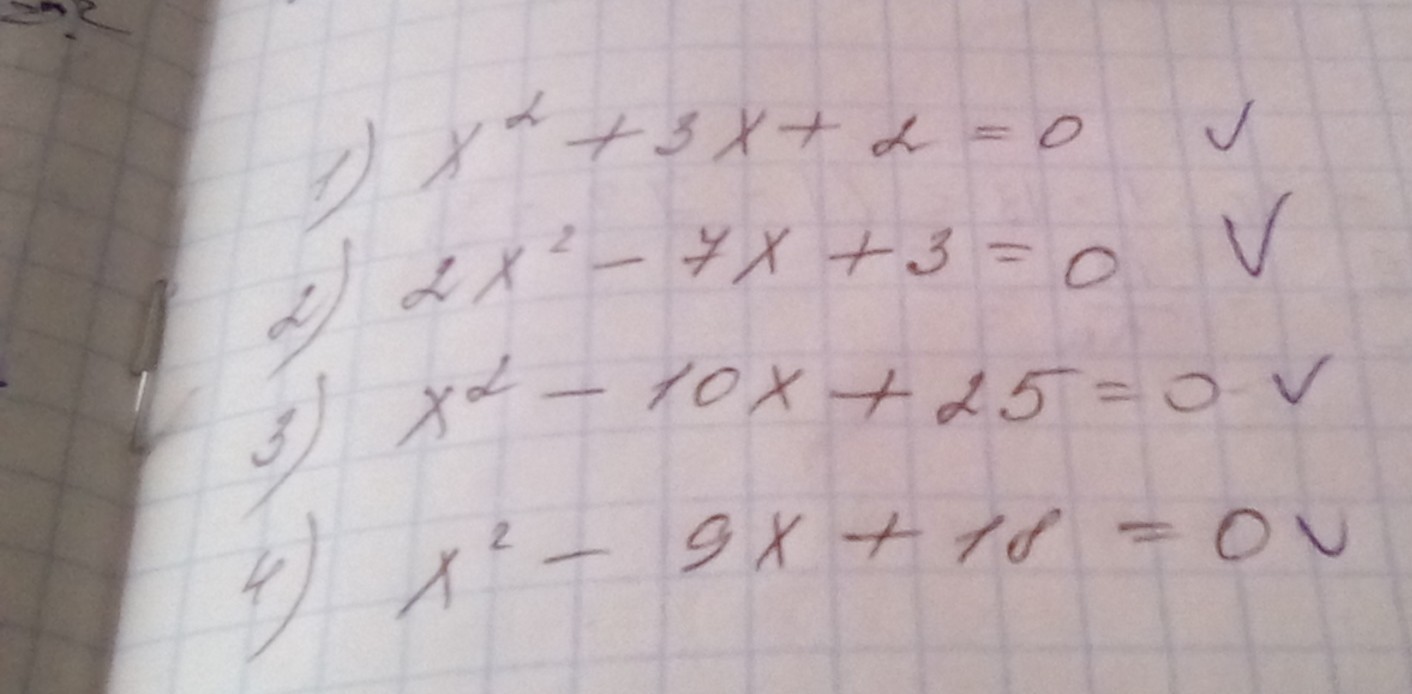 1) x² + 3x + 2 = 0 ✓
2) 2x² - 7x + 3 = 0 ✓
3) x² - 10x + 25 = 0 ✓
4) x² - 9x + 18 = 0 ✓